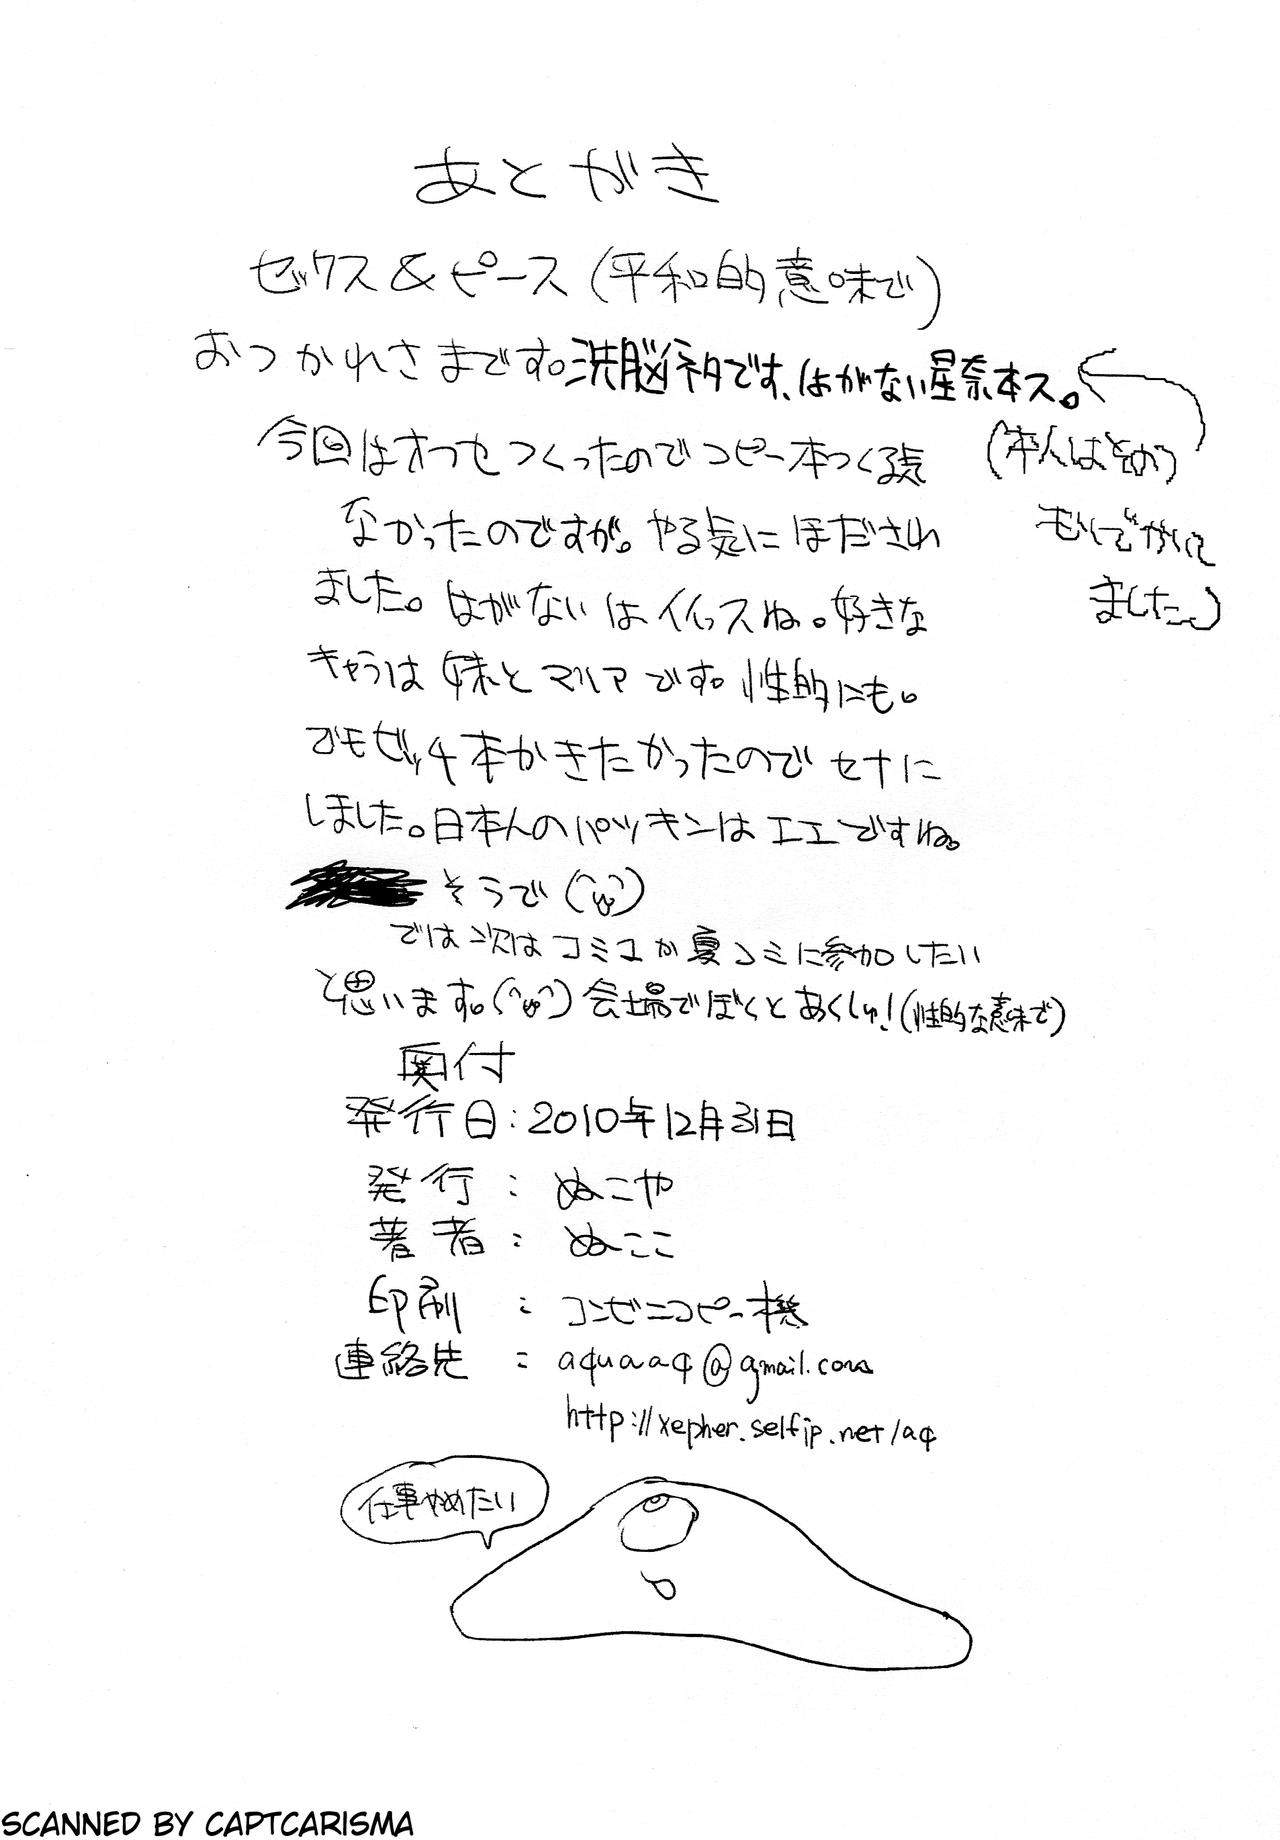 あとがき
セックス&ピース(平和的意味で)
おつかれさまです。洗脳ネタです、はがない星奈本ス。
(本人はそのつ
もりでかいて
ました。)
今回はオフセつくったのでコピー本つくる気
なかったのですが。やる気にほだされ
ました。はがないはイイっスね。好きな
キャラは妹とマリアです。性的にも。
でもビッチ本かきたかったのでセナに
しました。日本人のパツキンはエエですね。
そうで(^ω^)
では次はコミ1か夏コミに参加したい
と思います。(^ω^)会場でぼくとあくしゅ!(性的な意味で)
奥付
発行日:2010年12月31日
発行:ぬこや
著者:ぬここ
印刷:コンビニコピー機
連絡先:aquaaq@gmail.com
http://xepher.selfip.net/aq
仕事やめたい
SCANNED BY CAPTCARISMA